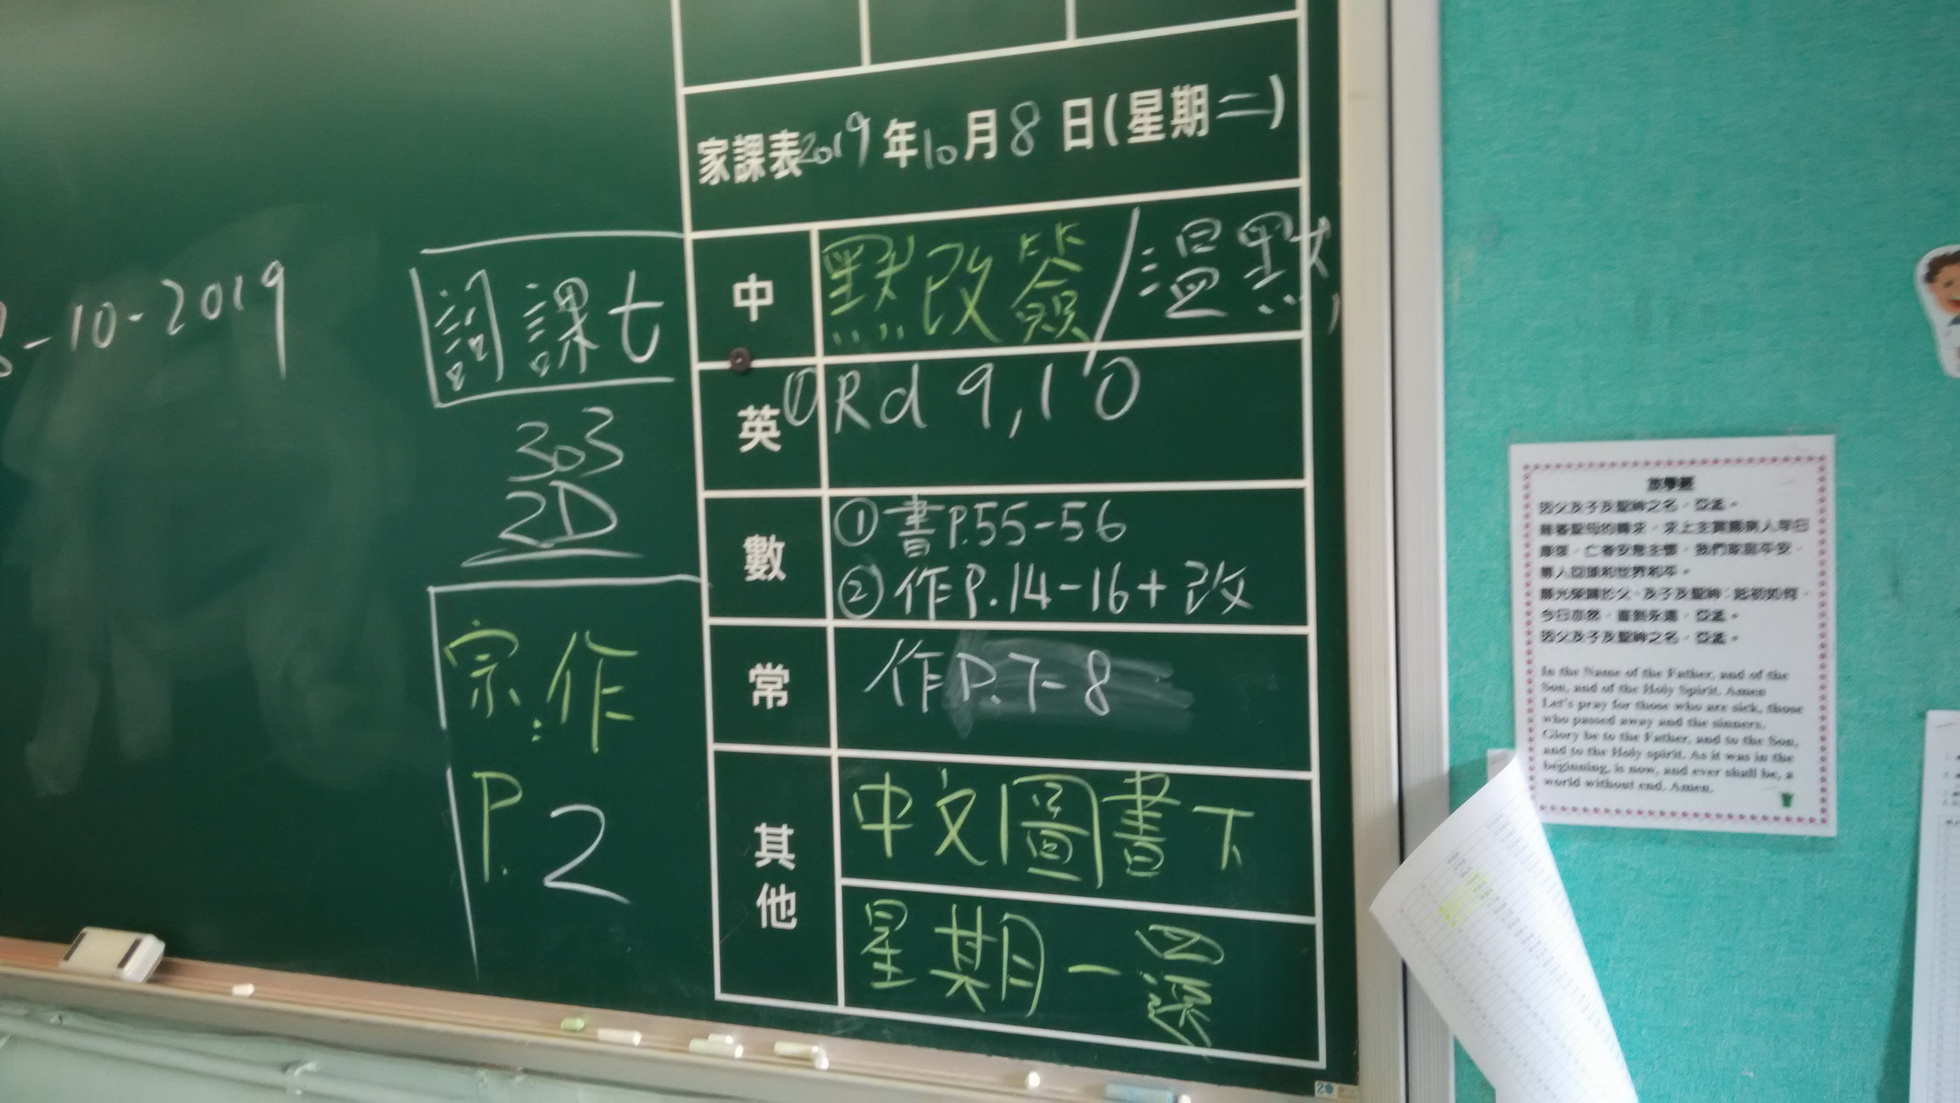 -10-2019
詞課七
303
2D
宗.作
P.2
家課表2019年10月8日(星期二)
中 默改簽/溫默
英 ①Rd 9,10
數 ①書P.55-56
②作P.14-16+改
常 作P.7-8
其他 中文圖書下
星期一還
放學經
因父及子及聖神之名，亞孟。
今日亦然，直到永遠，亞孟。
因父及子及聖神之名，亞孟。
In the Name of the Father, and of the
Son, and of the Holy Spirit. Amen
Let's pray for those who are sick, those
who passed away and the sinners.
Glory be to the Father, and to the Son,
and to the Holy spirit. As it was in the
beginning, is now, and ever shall be, a
world without end. Amen.